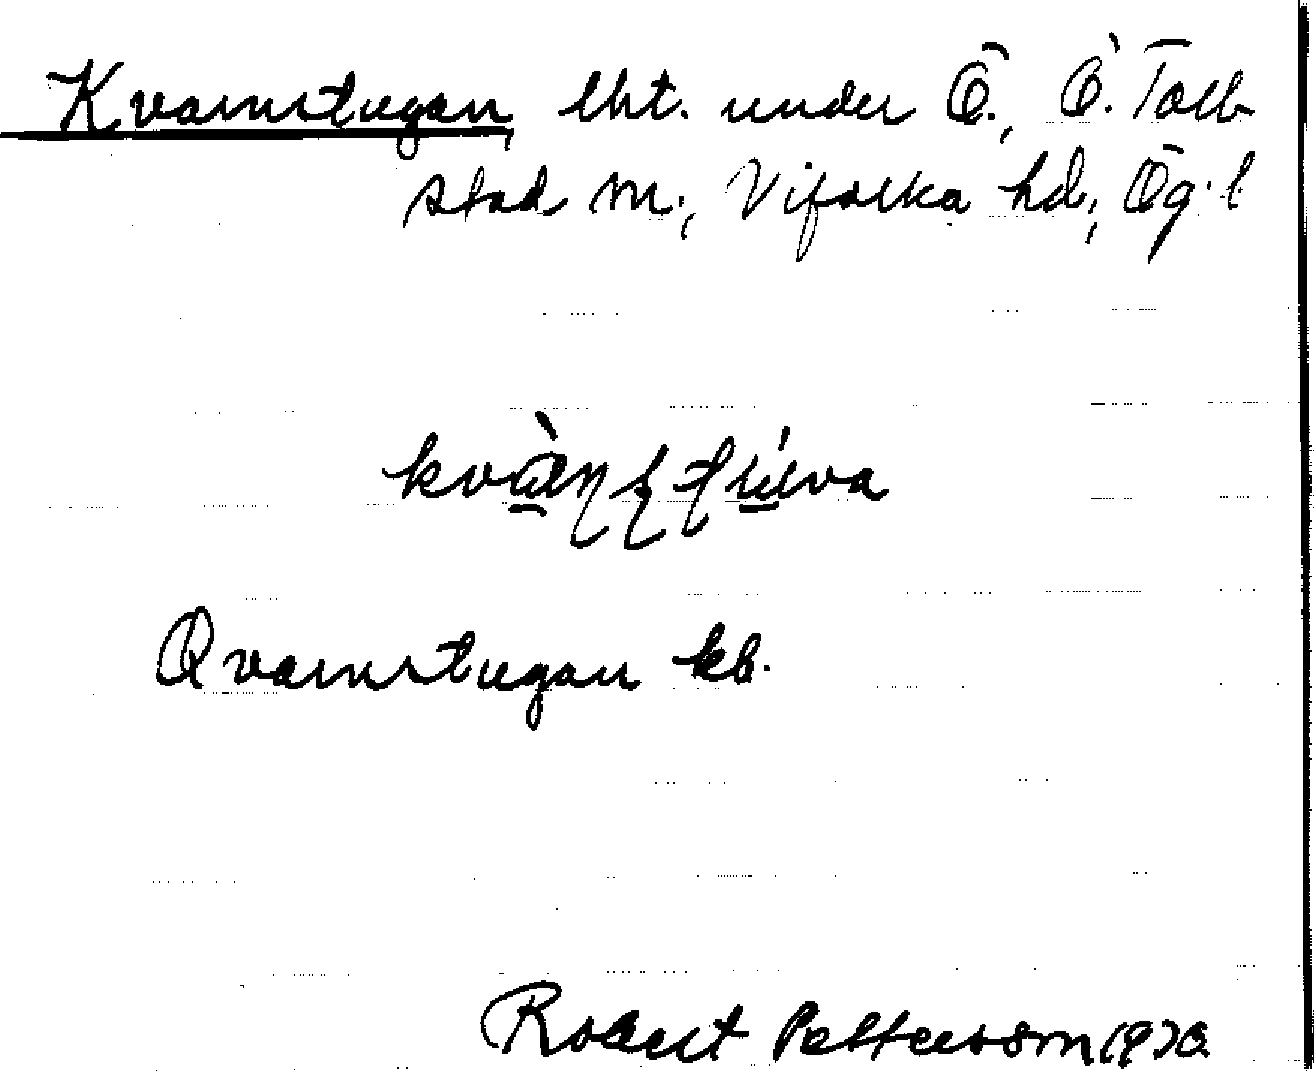 Kvarnstugan, lht. under Ö., Ö. Tolk-
stad sn., Vifolka hd., Ög. l.
Qvarnstugan kb.
Robert Pettersson 1970.